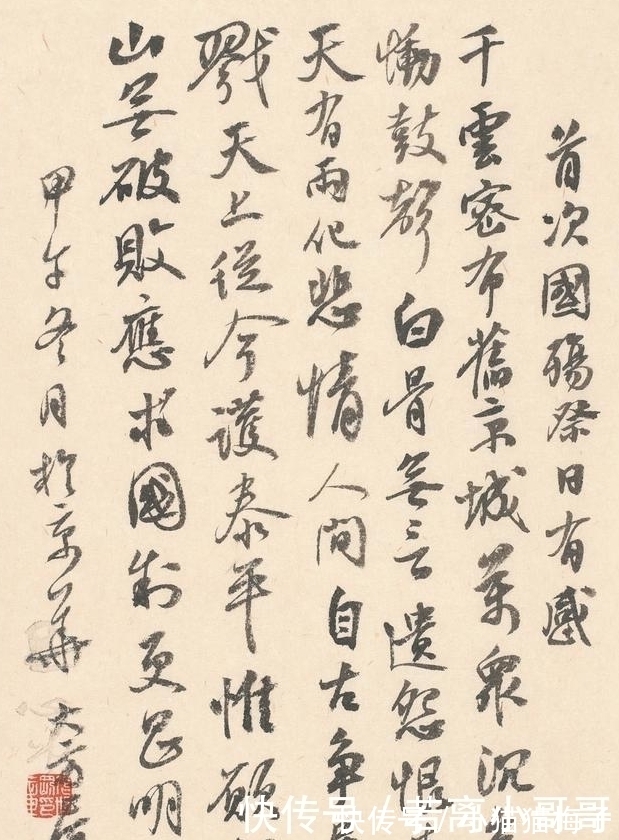 首次國殤祭日有感
千雲密布舊京城萬衆沉
慟鼓聲白骨無言遺怨恨
天有雨化悲情人間自古爭
戮天上從今護泰平惟願
山無破敗應求國制更昌明
甲午冬月於京華
快传号/若离小哥哥